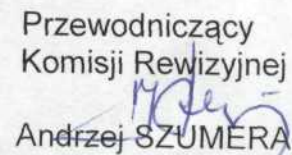 Przewodniczący
Komisji Rewizyjnej
Andrzej SZUMERA